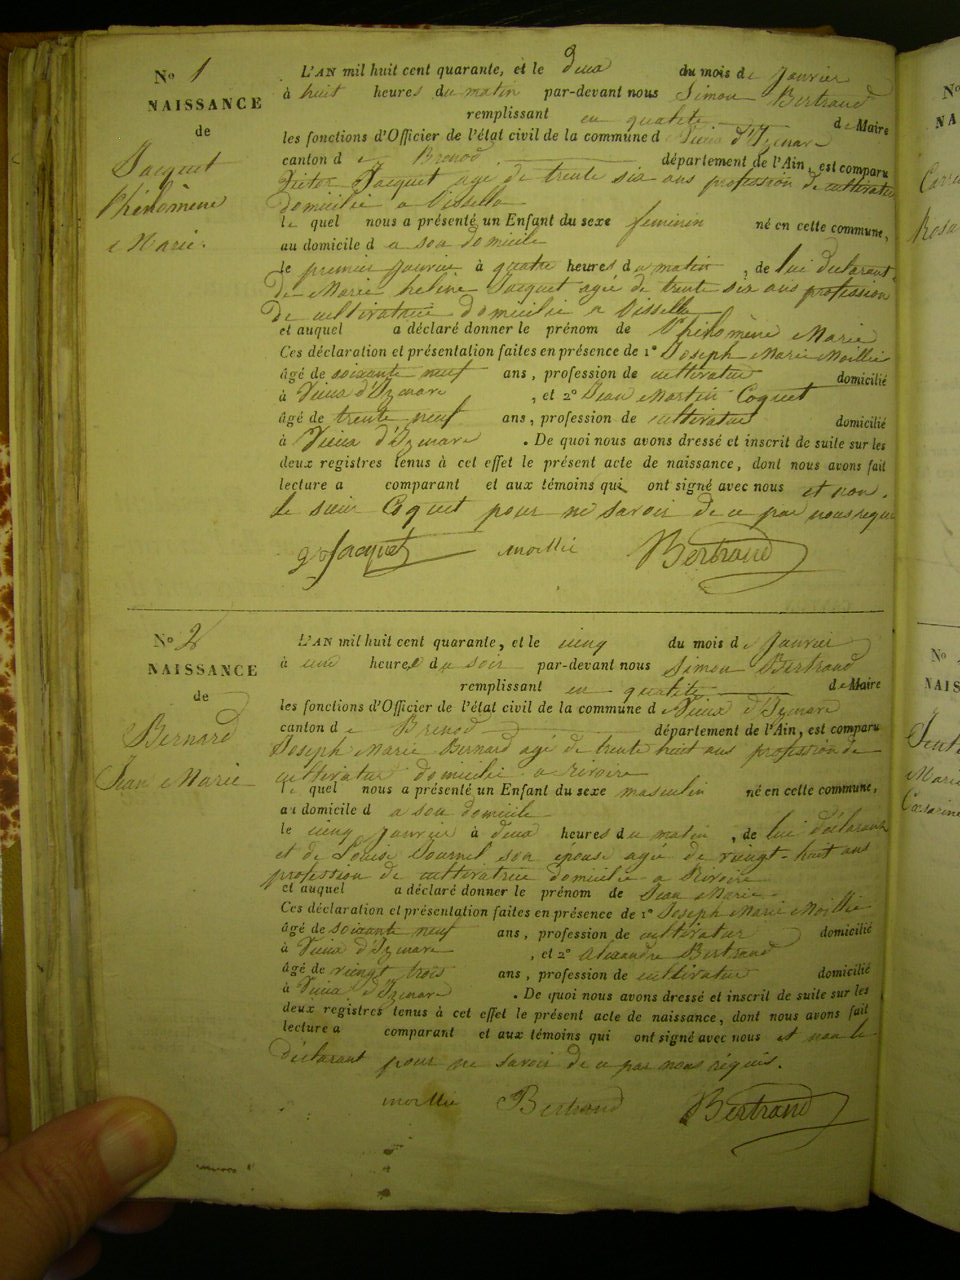 No 1
NAISSANCE
de
Jacquet
Phélomène
Marie.
L'AN mil huit cent quarante, et le deux du mois de Janvier
à huit heures du matin par-devant nous Simon Bertrand
remplissant en qualité de Maire
les fonctions d'Officier de l'état civil de la commune d Vieux d'Izenave
canton de Brenod département de l'Ain, est comparu
Victor Jacquet agé de trente six ans profession de cultivateur
domicilié a
le quel nous a présenté un Enfant du sexe feminin né en cette commune,
au domicile d a son domicile
le premier Janvier à quatre heures du matin, de lui déclarant
de Marie heline Jacquet agée de trente six ans profession
de cultivatrice domicilié a
et auquel a déclaré donner le prénom de Phélomène Marie
Ces déclaration et présentation faites en présence de 1° Joseph Marie Moillie
âgé de soixante neuf ans, profession de cultivateur domicilié
à Vieux d'Izenave, et 2° Jean Martin Coquet
âgé de trente neuf ans, profession de cultivateur domicilié
à Vieux d'Izenave. De quoi nous avons dressé et inscrit de suite sur les
deux registres tenus à cet effet le présent acte de naissance, dont nous avons fait
lecture a comparant et aux témoins qui ont signé avec nous et non
le sieur Coquet pour ne savoir de ce par nous requis
Jacquet moillie Bertrand
No 2
NAISSANCE
de
Bernard
Jean Marie
L'AN mil huit cent quarante, et le cinq du mois de Janvier
à une heure du soir par-devant nous Simon Bertrand
remplissant en qualité de Maire
les fonctions d'Officier de l'état civil de la commune de Vieux d'Izenave
canton de Brenod département de l'Ain, est comparu
Joseph Marie Bernard agé de trente huit ans profession de
cultivateur domicilié a rivoire
le quel nous a présenté un Enfant du sexe masculin né en cette commune,
au domicile d a son domicile
le cinq Janvier à deux heures du matin, de lui déclarant
et de Louise son épouse agée de vingt-huit ans
profession de cultivatrice domicilié a Rivoire
et auquel a déclaré donner le prénom de Jean Marie
Ces déclaration et présentation faites en présence de 1° Joseph Marie Moillie
âgé de soixante neuf ans, profession de cultivateur domicilié
à Vieux d'Izenave, et 2° Alexandre Bertrand
âgé de vingt trois ans, profession de cultivateur domicilié
à Vieux d'Izenave. De quoi nous avons dressé et inscrit de suite sur les
deux registres tenus à cet effet le présent acte de naissance, dont nous avons fait
lecture a comparant et aux témoins qui ont signé avec nous et non le
déclarant pour ne savoir de ce par nous réquis.
moillie Bertrand Bertrand